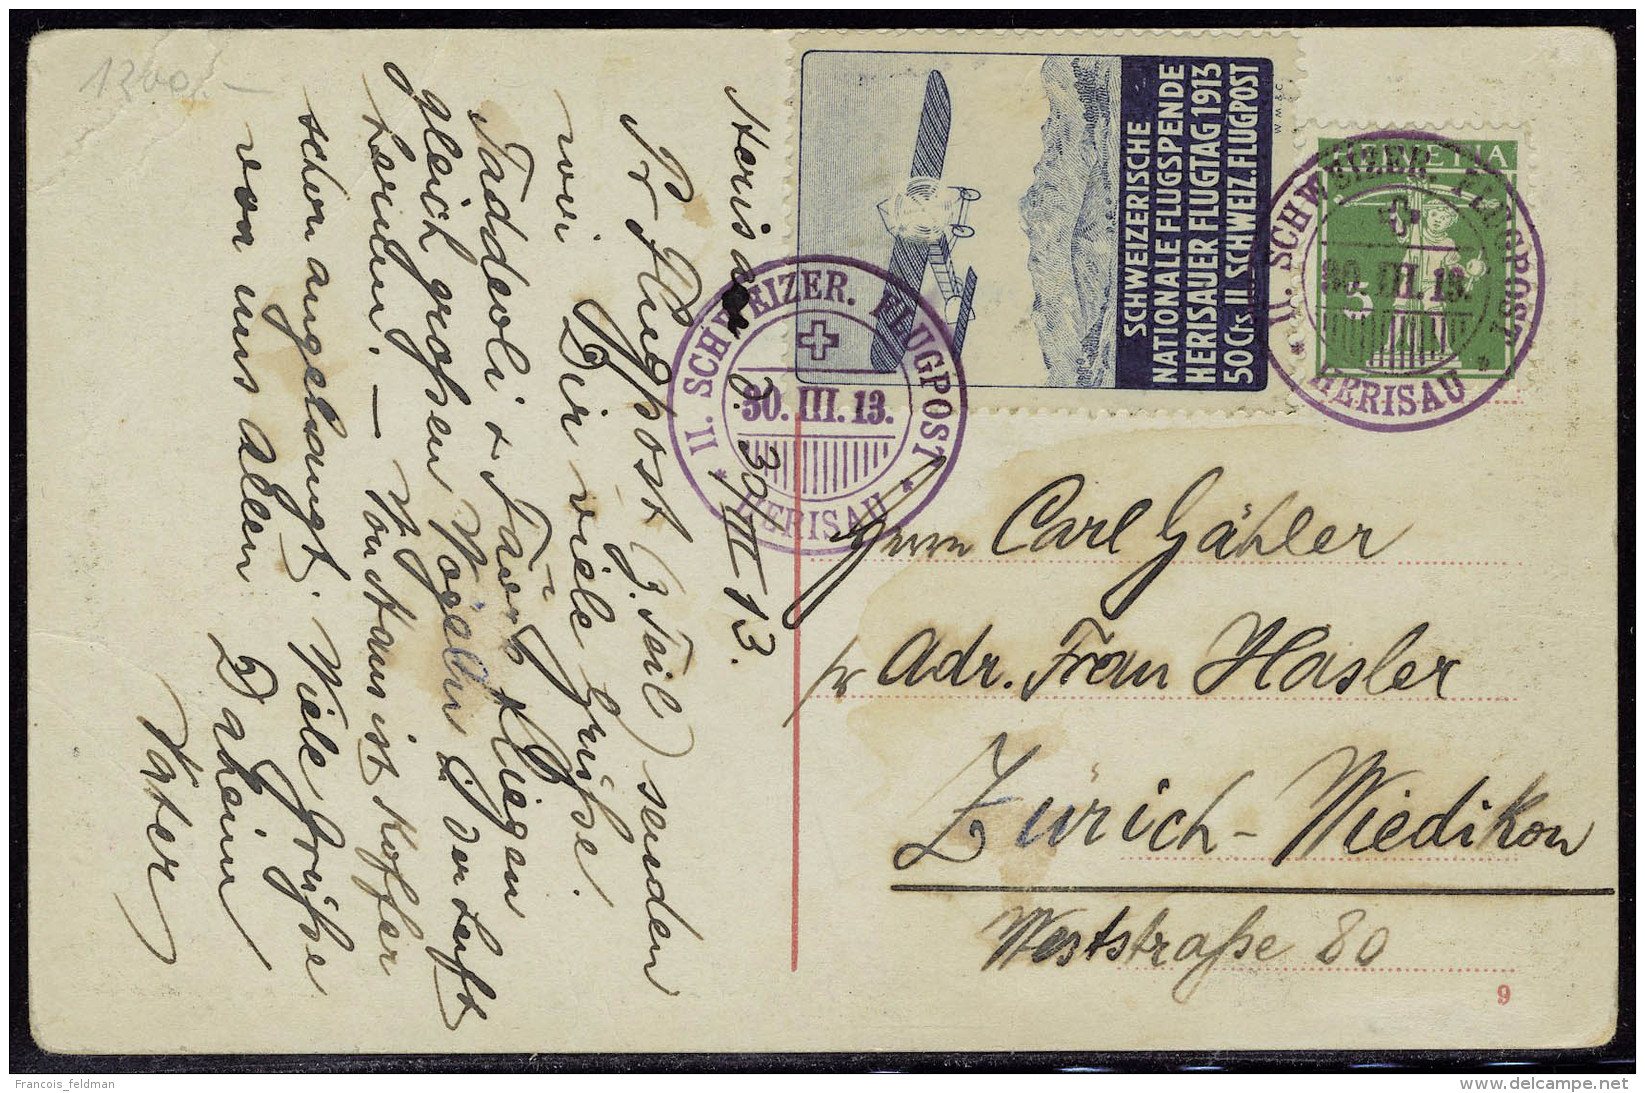 1200.-
Herisau d. 30/III 13.
Pr Flugpost (z. Teil) senden
wir Dir viele Grüsse.
Taddeoli & Favre fliegen
gleich grossen Vögeln i. der Luft
herum. — Von Hans ist Koffer
schon angelangt. Viele Grüsse
von uns allen Daheim
Vater
SCHWEIZERISCHE
NATIONALE FLUGSPENDE
HERISAUER FLUGTAG 1913
50 Cts. II. SCHWEIZ. FLUGPOST
W. M. & C.
HELVETIA
5
II. SCHWEIZER. FLUGPOST
30. III. 13.
* HERISAU *
II. SCHWEIZER. FLUGPOST
30. III. 13.
* HERISAU *
Herrn Carl Gähler
pr Adr. Frau Hasler
Zürich-Wiedikon
Weststraße 80
9
Francois_feldman
https://www.delcampe.net